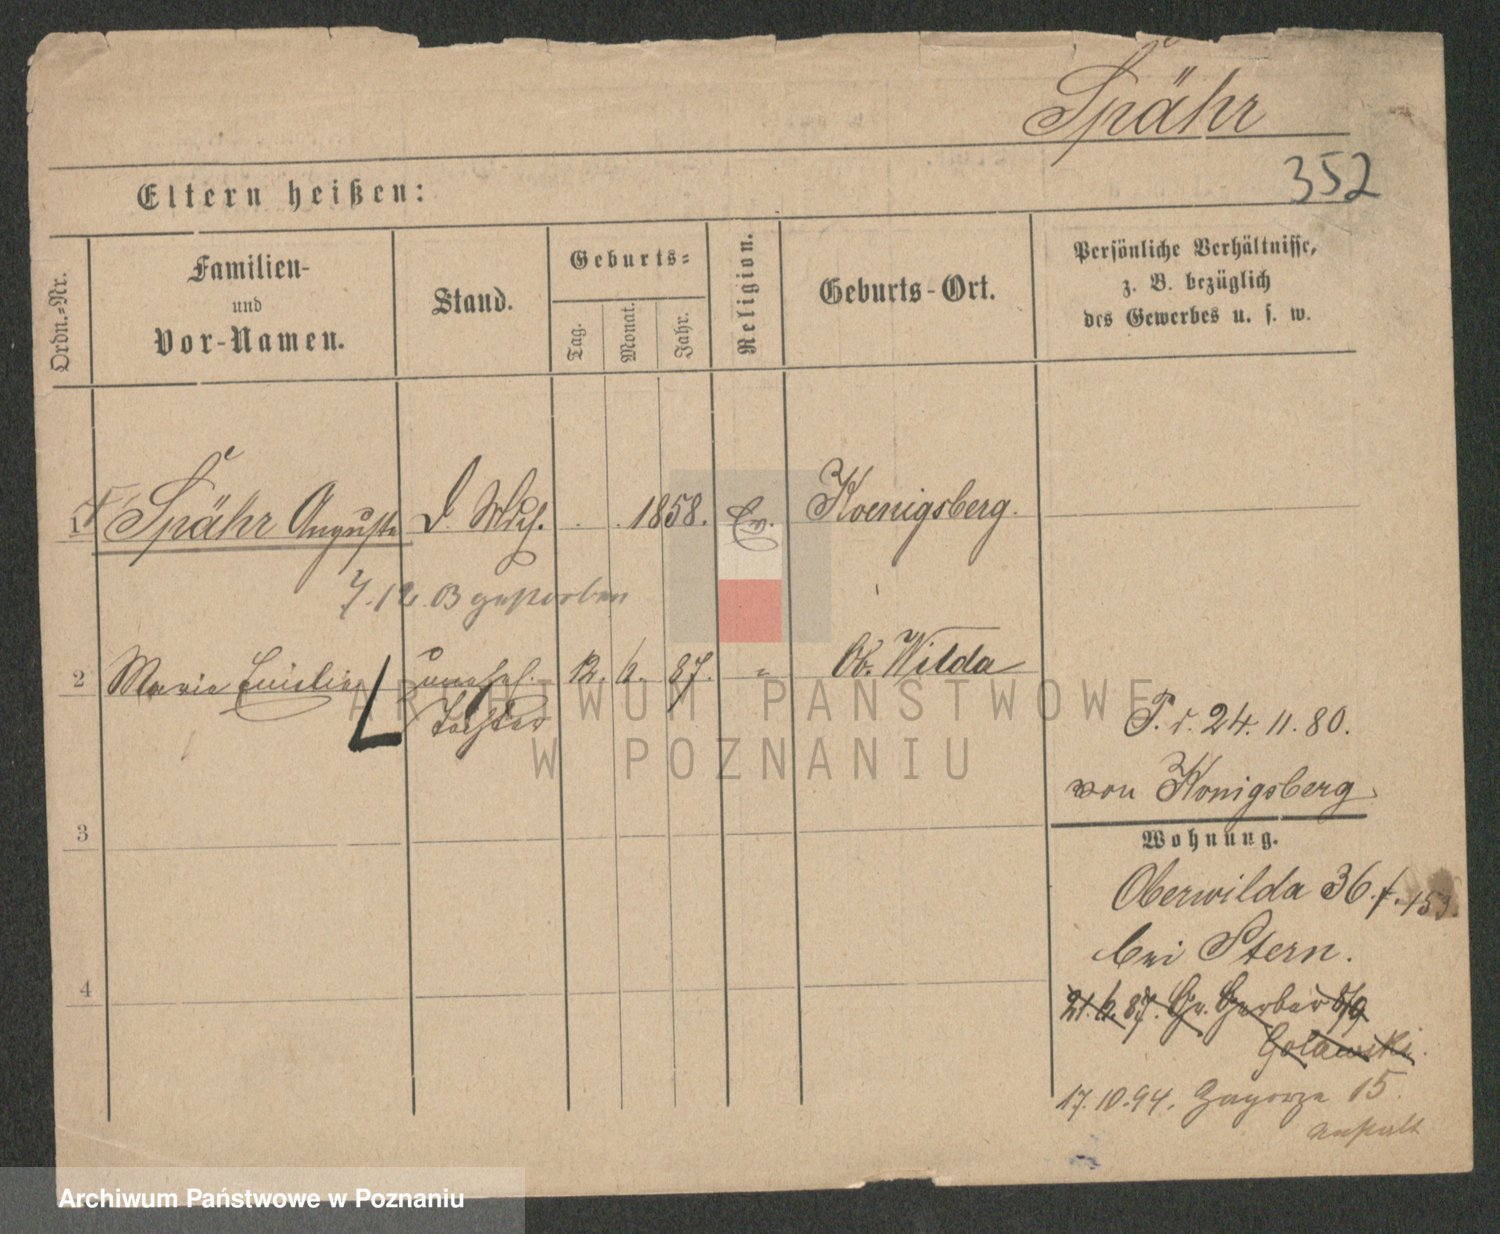 Spähr
352
Eltern heißen:
Ordn.-Nr.
Familien-
und
Vor-Namen.
Stand.
Geburts-
Tag.
Monat.
Jahr.
Religion.
Geburts-Ort.
Persönliche Verhältnisse,
z. B. bezüglich
des Gewerbes u. s. w.
1 Spähr Auguste 1858. Ev. Koenigsberg.
7.12.03 gestorben
2 Marie Emilie unehel. 12. 6. 87. " Ob. Wilda
Tochter
3
4
P. v. 24. 11. 80.
von Konigsberg
Wohnung.
Oberwilda 36.
bei Stern.
21. 6. 87. Gr. Gerber 8/9
Golawski.
17.10.94. Zagorze 15.
Anstalt
ARCHIWUM PAŃSTWOWE
W POZNANIU
Archiwum Państwowe w Poznaniu